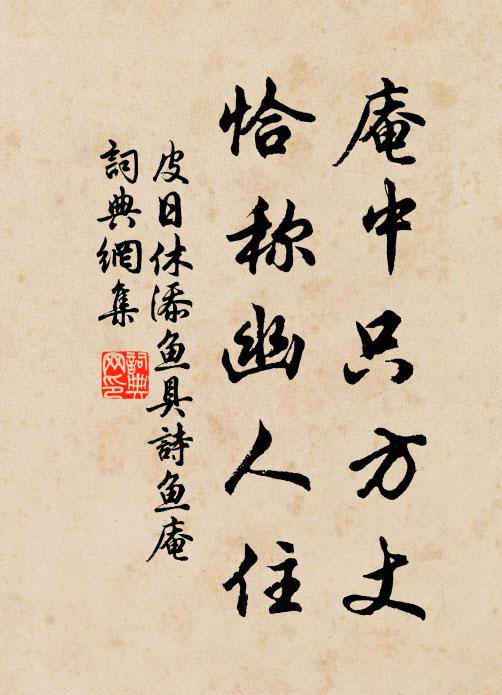 庵中只方丈
恰称幽人住
皮日休添鱼具詩鱼庵
詞典網集
詞典
网印